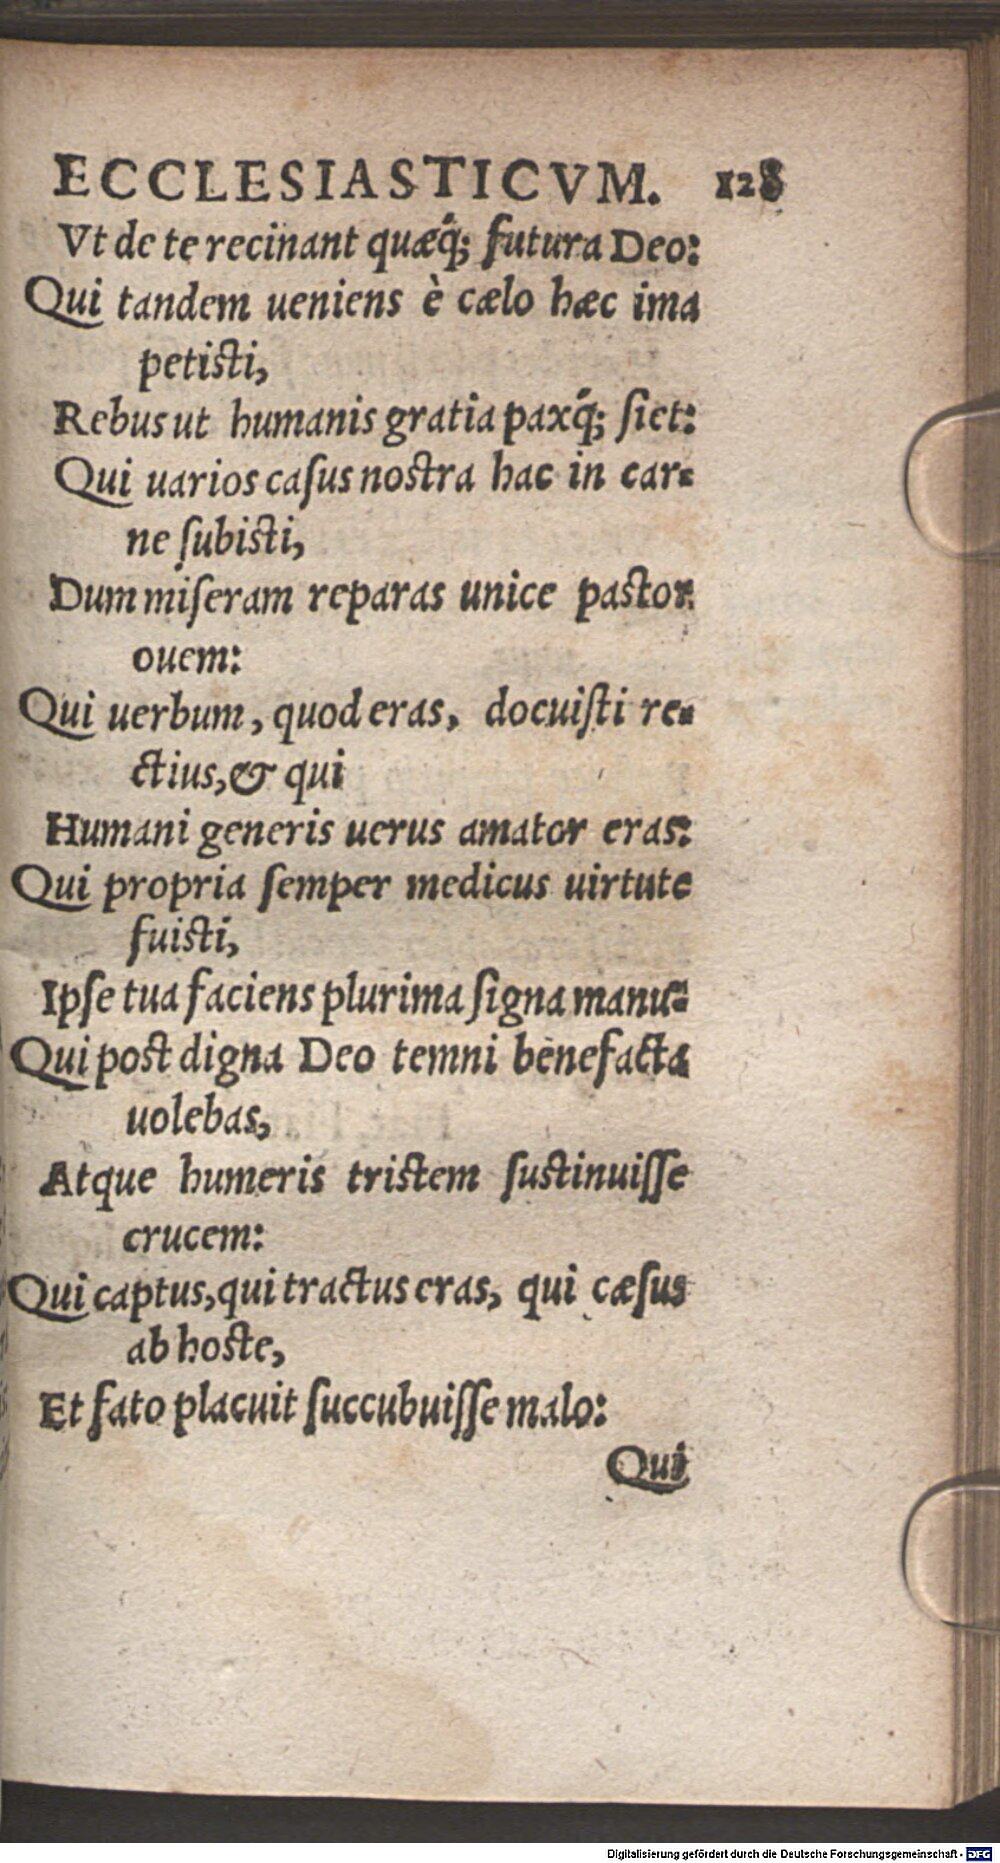 ECCLESIASTICVM. 128
Vt de te recinant quæq́; futura Deo:
Qui tandem ueniens è cælo hæc ima
petisti,
Rebus ut humanis gratia paxq́; fiet:
Qui uarios casus nostra hac in car-
ne subisti,
Dum miseram reparas unice pastor
ouem:
Qui uerbum, quod eras, docuisti re-
ctius, & qui
Humani generis uerus amator eras:
Qui propria semper medicus uirtute
fuisti,
Ipse tua faciens plurima signa manu:
Qui post digna Deo temni benefacta
uolebas,
Atque humeris tristem sustinuisse
crucem:
Qui captus, qui tractus eras, qui cæsus
ab hoste,
Et fato placuit succubuisse malo:
Qui
Digitalisierung gefördert durch die Deutsche Forschungsgemeinschaft - DFG